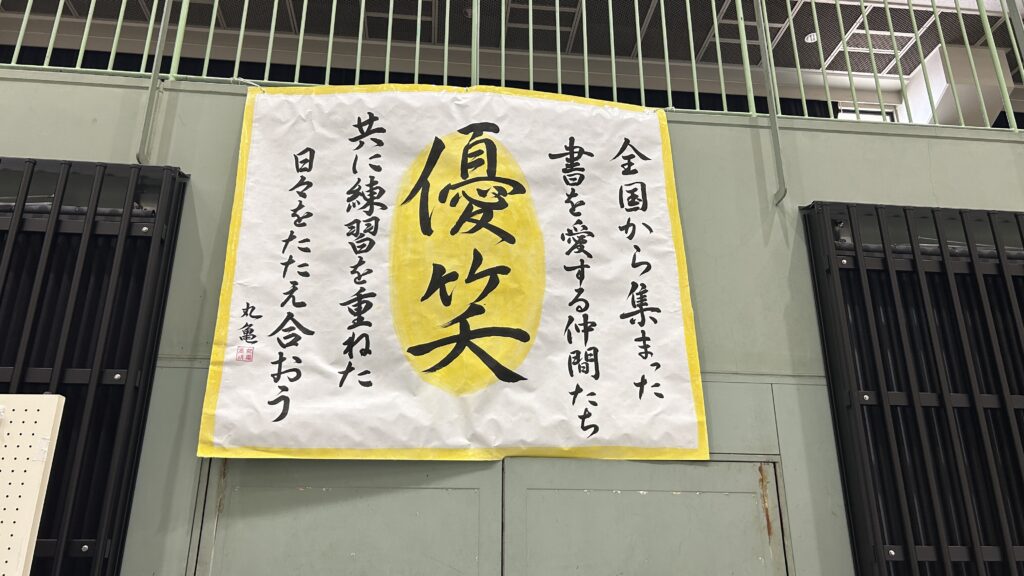 全国から集まった
書を愛する仲間たち
優笑
共に練習を重ねた
日々をたたえ合おう
丸亀